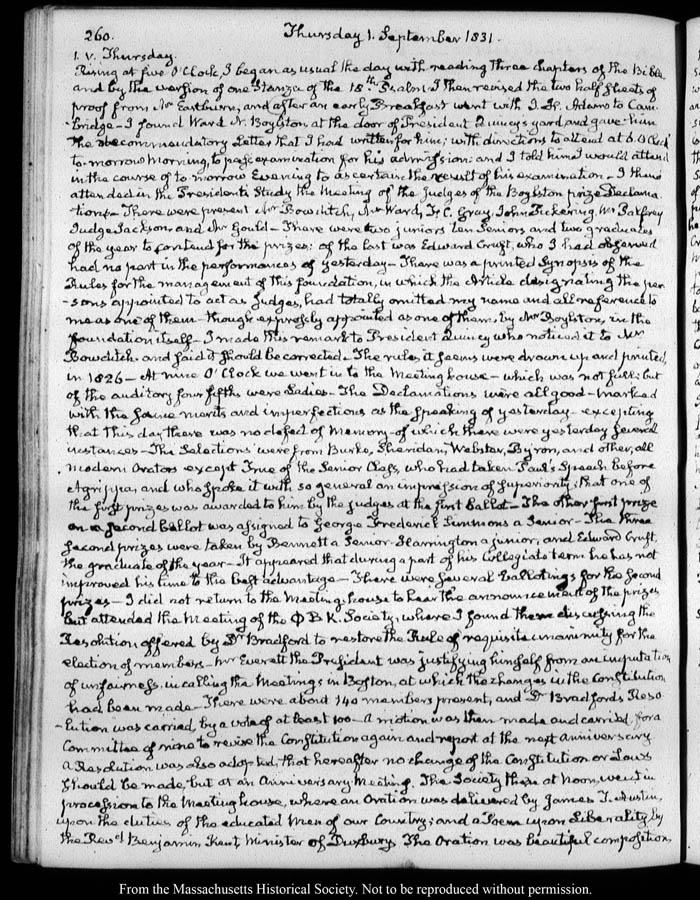 260.
Thursday 1. September 1831.
1. V. Thursday.
Rising at five O'Clock, I began as usual the day with reading three chapters of the Bible
and by the version of one Stanza of the 18th Psalm. I then revised the two half sheets of
proof from Mr Eastburn, and after an early Breakfast went with I. H. Adams to Cam-
-bridge_ I found Ward N. Boylston at the door of President Quincy's yard and gave him
the recommendatory Letter that I had written for him; with directions to attend at 6. O'Clock
to-morrow morning, to pass examination for his admission: and I told him I would attend
in the course of to morrow Evening to ascertain the result of his examination_ I then
attended in the Presidents Study the Meeting of the Judges of the Boylston prize Declama-
-tions_ There were present Mr Bowditch, Mr Ward, F. C. Gray, John Pickering, Mr Palfrey
Judge Jackson, and Mr Gould_ There were two juniors ten Seniors and two graduates
of the year to contend for the prizes: of the last was Edward Cruft, who I had observed
had no part in the performances of yesterday_ There was a printed Synopsis of the
Rules for the management of this foundation, in which the Article designating the per-
-sons appointed to act as Judges, had totally omitted my name and all reference to
me as one of them_ though expressly appointed as one of them, by Mr Boylston, in the
foundation itself_ I made this remark to President Quincy who noticed it to Mr
Bowditch. and said it should be corrected_ The rules it seems were drawn up and printed
in 1826_ At nine O'Clock we went in to the Meeting house_ which was not full: but
of the auditory four fifths were Ladies_ The Declamations were all good_ marked
with the same merits and imperfections as the speaking of yesterday_ excepting
that this day there was no defect of Memory_ of which there were yesterday several
instances_ The Selections were from Burke, Sheridan, Webster, Byron, and other, all
modern Orators except True of the Senior Class, who had taken Paul's Speech before
Agrippa, and who spoke it with so general an impression of superiority, that one of
the first prizes was awarded to him by the judges at the first ballot_ The other first prize
on a second ballot was assigned to George Frederick Simmons a Senior_ The three
second prizes were taken by Bennett a Senior Harrington a junior, and Edward Cruft,
the graduate of the year_ It appeared that during a part of his Collegiate term he has not
improved his time to the best advantage_ There were several Ballotings for the second
prizes_ I did not return to the Meeting-house to hear the announcement of the prizes
but attended the Meeting of the Φ B K. Society, where I found them discussing the
Resolution offered by Dr Bradford to restore the Rule of requisite unanimity for the
election of members_ Mr Everett the President was justifying himself from an imputation
of unfairness, in calling the Meetings in Boston, at which the changes in the Constitution
had been made_ There were about 140 members present, and Dr Bradfords Reso-
-lution was carried, by a vote of at least 100_ A motion was then made and carried, for a
Committee of nine to revise the Constitution again and report at the next anniversary
a Resolution was also adopted, that hereafter no change of the Constitution or Laws
should be made, but at an Anniversary Meeting. The Society then at Noon, went in
procession to the Meeting house, where an Oration was delivered by James T. Austin,
upon the duties of the educated Men of our Country; and a Poem upon Liberality by
the Revd Benjamin Kent Minister of Duxbury. The Oration was beautiful composition
From the Massachusetts Historical Society. Not to be reproduced without permission.